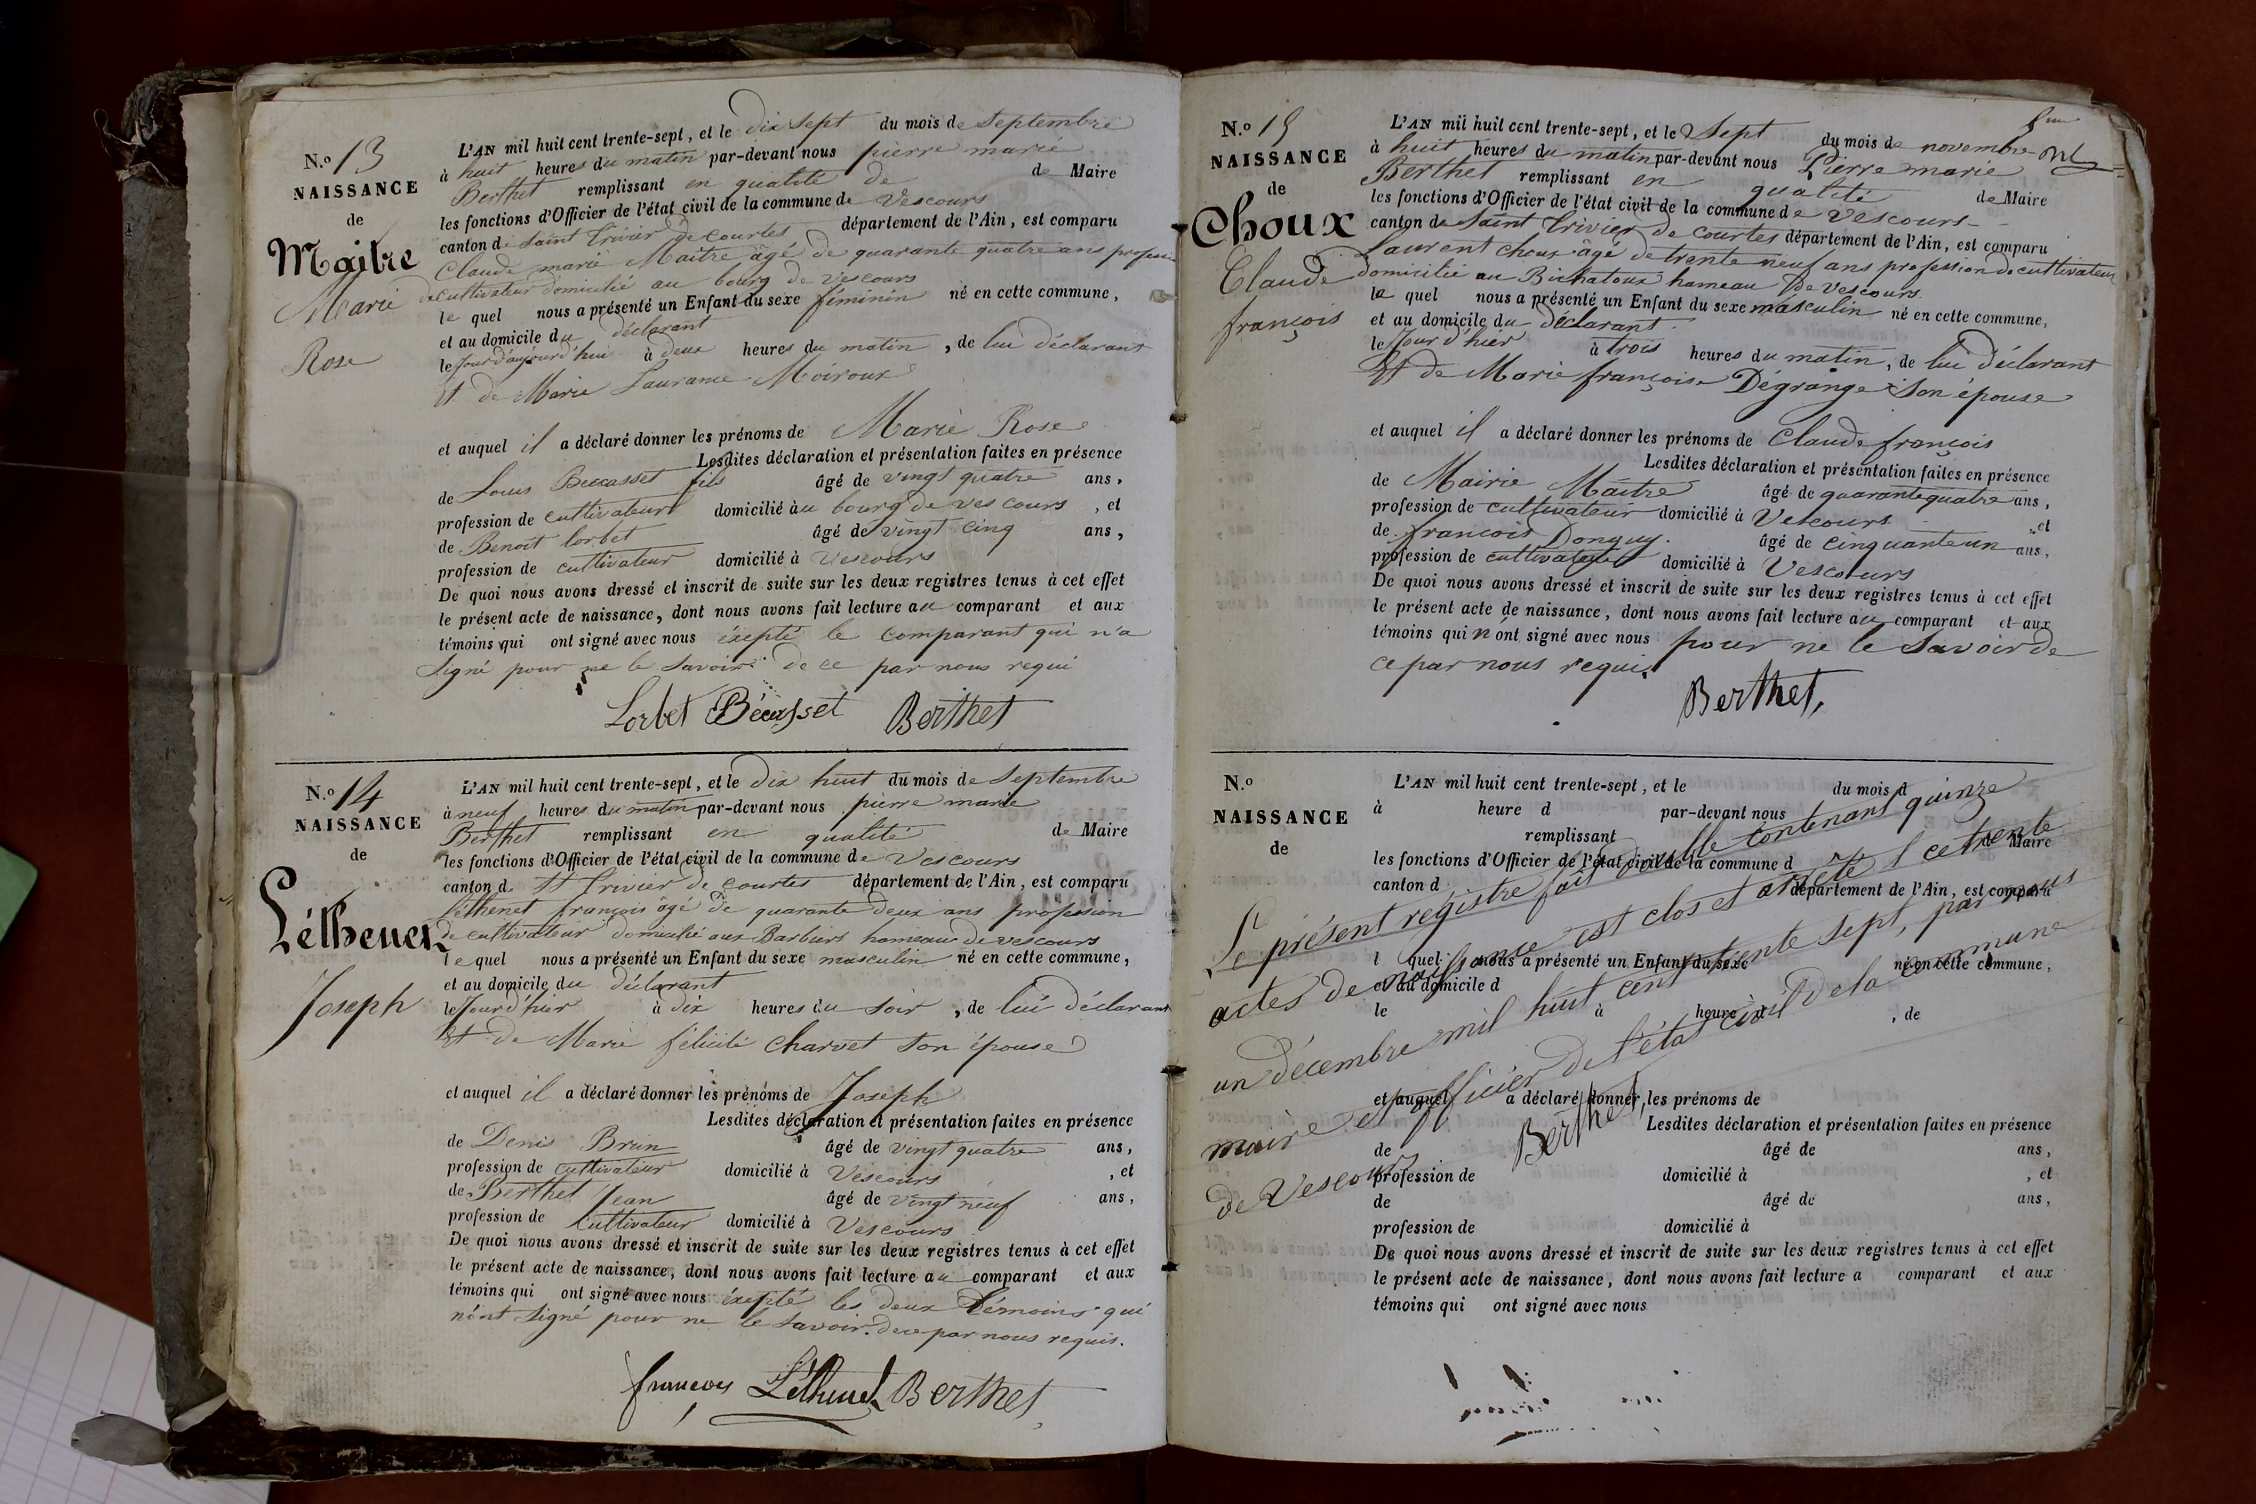 N.o 13
NAISSANCE
de
Maitre
Marie
Rose
L'AN mil huit cent trente-sept, et le dix sept du mois de Septembre
à huit heures du matin par-devant nous pierre marie
Berthet remplissant en qualité de de Maire
les fonctions d'Officier de l'état civil de la commune de Vescours
canton de Saint Trivier de Courtes département de l'Ain, est comparu
Claude marie Maitre âgé de quarante quatre ans profession
de cultivateur domicilié au bourg de Vescours
le quel nous a présenté un Enfant du sexe féminin né en cette commune,
et au domicile du déclarant
le Jour d'aujourd'hui à deux heures du matin, de lui déclarant
Et de Marie Laurance Moiroux
et auquel il a déclaré donner les prénoms de Marie Rose
Lesdites déclaration et présentation faites en présence
de Louis Beccasset fils âgé de vingt quatre ans,
profession de cultivateur domicilié au bourg de Vescours, et
de Benoit Lorbet âgé de vingt cinq ans,
profession de cultivateur domicilié à Vescours
De quoi nous avons dressé et inscrit de suite sur les deux registres tenus à cet effet
le présent acte de naissance, dont nous avons fait lecture au comparant et aux
témoins qui ont signé avec nous éxepté le comparant qui n'a
Signé pour ne le Savoir de ce par nous requi
Lorbet Bécasset Berthet
N.o 14
NAISSANCE
de
Léthenet
Joseph
L'AN mil huit cent trente-sept, et le dix huit du mois de Septembre
à neuf heures du matin par-devant nous pierre marie
Berthet remplissant en qualité de Maire
les fonctions d'Officier de l'état civil de la commune de Vescours
canton de St Trivier de Courtes département de l'Ain, est comparu
Léthenet françois âgé de quarante deux ans profession
de cultivateur domicilié aux Barbiers hameau de vescours
le quel nous a présenté un Enfant du sexe masculin né en cette commune,
et au domicile du déclarant
le Jour d'hier à dix heures du Soir, de lui déclarant
Et de Marie félicité Charvet Son épouse
et auquel il a déclaré donner les prénoms de Joseph
Lesdites déclaration et présentation faites en présence
de Denis Brun âgé de vingt quatre ans,
profession de cultivateur domicilié à Vescours, et
de Berthet Jean âgé de vingt neuf ans,
profession de cultivateur domicilié à Vescours
De quoi nous avons dressé et inscrit de suite sur les deux registres tenus à cet effet
le présent acte de naissance, dont nous avons fait lecture au comparant et aux
témoins qui ont signé avec nous éxepté les deux témoins qui
n'ont Signé pour ne le Savoir de ce par nous requis.
françois Léthenet Berthet
N.o 15
NAISSANCE
de
Choux
Claude
françois
L'AN mil huit cent trente-sept, et le Sept du mois de novembre
à huit heures du matin par-devant nous Pierre marie
Berthet remplissant en qualité de Maire
les fonctions d'Officier de l'état civil de la commune de Vescours
canton de Saint Trivier de Courtes département de l'Ain, est comparu
Laurent choux âgé de trente neuf ans profession de cultivateur
domicilié au Bichatoux hameau de Vescours
le quel nous a présenté un Enfant du sexe masculin né en cette commune,
et au domicile du déclarant.
le Jour d'hier à trois heures du matin, de lui déclarant
Et de Marie françoise Dégrange Son épouse
et auquel il a déclaré donner les prénoms de Claude françois
Lesdites déclaration et présentation faites en présence
de Mairie Maitre âgé de quarante quatre ans,
profession de cultivateur domicilié à Vescours et
de françois Donguy. âgé de cinquante un ans,
profession de cultivateur domicilié à Vescours
De quoi nous avons dressé et inscrit de suite sur les deux registres tenus à cet effet
le présent acte de naissance, dont nous avons fait lecture au comparant et aux
témoins qui n'ont signé avec nous pour ne le Savoir de
ce par nous requis.
Berthet,
N.o
NAISSANCE
de
L'AN mil huit cent trente-sept, et le du mois d
à heure d par-devant nous
remplissant de Maire
les fonctions d'Officier de l'état civil de la commune d
canton d département de l'Ain, est comparu
l quel nous a présenté un Enfant du sexe né en cette commune,
et au domicile d
le à heure d , de
et auquel a déclaré donner les prénoms de
Lesdites déclaration et présentation faites en présence
de âgé de ans,
profession de domicilié à , et
de âgé de ans,
profession de domicilié à
De quoi nous avons dressé et inscrit de suite sur les deux registres tenus à cet effet
le présent acte de naissance, dont nous avons fait lecture a comparant et aux
témoins qui ont signé avec nous
Le présent registre fait double contenant quinze
actes de naissance est clos et arrété ce trente
un décembre mil huit cent trente sept, par nous
maire et officier de l'état civil de la commune
de Vescours Berthet,